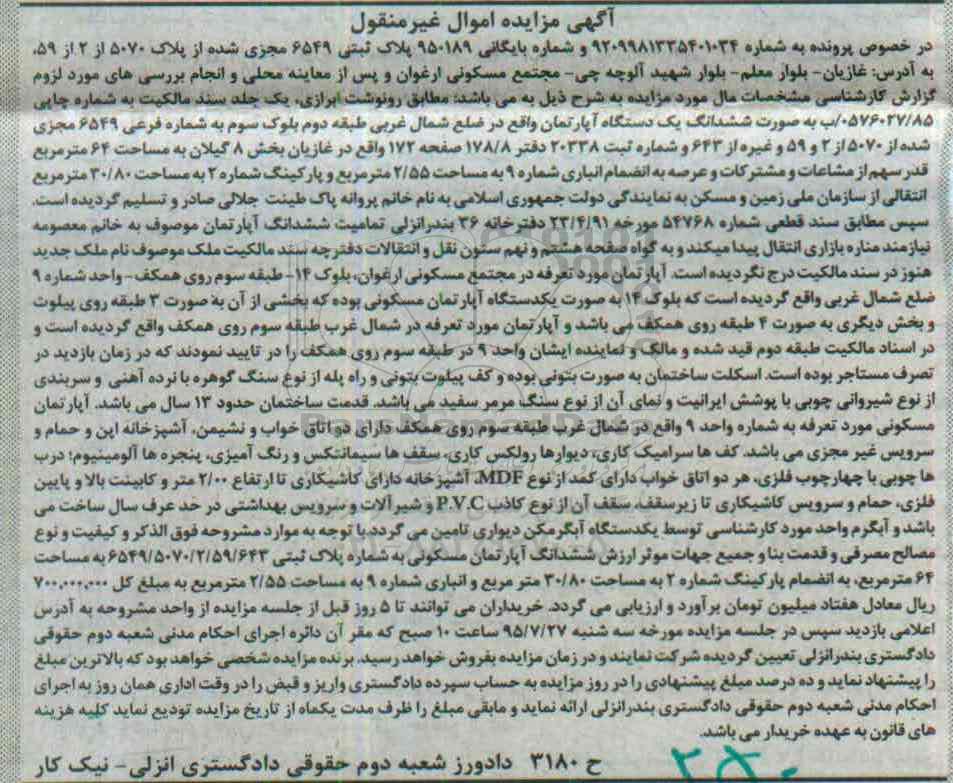 آگهی مزایده اموال غیرمنقول
در خصوص پرونده به شماره ۹۲۰۹۹۸۱۳۳۵۴۰۱۰۳۴ و شماره بایگانی ۹۵۰۱۸۹ پلاک ثبتی ۶۵۴۹ مجزی شده از پلاک ۵۰۷۰ از ۲ از ۵۹،
به آدرس: غازیان- بلوار معلم- بلوار شهید آلوچه چی- مجتمع مسکونی ارغوان و پس از معاینه محلی و انجام بررسی های مورد لزوم
گزارش کارشناسی مشخصات مال مورد مزایده به شرح ذیل به می باشد: مطابق رونوشت ابرازی، یک جلد سند مالکیت به شماره چاپی
۰۵۷۶۰۲۷/۸۵/ب به صورت ششدانگ یک دستگاه آپارتمان واقع در ضلع شمال غربی طبقه دوم بلوک سوم به شماره فرعی ۶۵۴۹ مجزی
شده از ۵۰۷۰ از ۲ و ۵۹ و غیره از ۶۴۳ و شماره ثبت ۲۰۳۳۸ دفتر ۱۷۸/۸ صفحه ۱۷۲ واقع در غازیان بخش ۸ گیلان به مساحت ۶۴ مترمربع
قدر سهم از مشاعات و مشترکات و عرصه به انضمام انباری شماره ۹ به مساحت ۲/۵۵ مترمربع و پارکینگ شماره ۲ به مساحت ۳۰/۸۰ مترمربع
انتقالی از سازمان ملی زمین و مسکن به نمایندگی دولت جمهوری اسلامی به نام خانم پروانه پاک طینت جلالی صادر و تسلیم گردیده است.
سپس مطابق سند قطعی شماره ۵۴۷۶۸ مورخه ۲۳/۴/۹۱ دفترخانه ۳۶ بندرانزلی تمامیت ششدانگ آپارتمان موصوف به خانم معصومه
نیازمند مناره بازاری انتقال پیدا میکند و به گواه صفحه هشتم و نهم ستون نقل و انتقالات دفترچه سند مالکیت ملک موصوف نام ملک جدید
هنوز در سند مالکیت درج نگردیده است. آپارتمان مورد تعرفه در مجتمع مسکونی ارغوان، بلوک ۱۴- طبقه سوم روی همکف- واحد شماره ۹
ضلع شمال غربی واقع گردیده است که بلوک ۱۴ به صورت یکدستگاه آپارتمان مسکونی بوده که بخشی از آن به صورت ۳ طبقه روی پیلوت
و بخش دیگری به صورت ۴ طبقه روی همکف می باشد و آپارتمان مورد تعرفه در شمال غرب طبقه سوم روی همکف واقع گردیده است و
در اسناد مالکیت طبقه دوم قید شده و مالک و نماینده ایشان واحد ۹ در طبقه سوم روی همکف را در تایید نمودند که در زمان بازدید در
تصرف مستاجر بوده است. اسکلت ساختمان به صورت بتونی بوده و کف پیلوت بتونی و راه پله از نوع سنگ گوهره با نرده آهنی و سربندی
از نوع شیروانی چوبی با پوشش ایرانیت و نمای آن از نوع سنگ مرمر سفید می باشد. قدمت ساختمان حدود ۱۳ سال می باشد. آپارتمان
مسکونی مورد تعرفه به شماره واحد ۹ واقع در شمال غرب طبقه سوم روی همکف دارای دو اتاق خواب و نشیمن، آشپزخانه اپن و حمام و
سرویس غیر مجزی می باشد. کف ها سرامیک کاری، دیوارها رولکس کاری، سقف ها سیمانتکس و رنگ آمیزی، پنجره ها آلومینیوم؛ درب
ها چوبی با چهارچوب فلزی، هر دو اتاق خواب دارای کمد از نوع MDF، آشپزخانه دارای کاشیکاری تا ارتفاع ۲/۰۰ متر و کابینت بالا و پایین
فلزی، حمام و سرویس کاشیکاری تا زیرسقف، سقف آن از نوع کاذب P.V.C و شیرآلات و سرویس بهداشتی در حد عرف سال ساخت می
باشد و آبگرم واحد مورد کارشناسی توسط یکدستگاه آبگرمکن دیواری تامین می گردد با توجه به موارد مشروحه فوق الذکر و کیفیت و نوع
مصالح مصرفی و قدمت بنا و جمیع جهات موثر ارزش ششدانگ آپارتمان مسکونی به شماره پلاک ثبتی ۶۵۴۹/۵۰۷۰/۲/۵۹/۶۴۳ به مساحت
۶۴ مترمربع، به انضمام پارکینگ شماره ۲ به مساحت ۳۰/۸۰ متر مربع و انباری شماره ۹ به مساحت ۲/۵۵ مترمربع به مبلغ کل ۷۰۰,۰۰۰,۰۰۰
ریال معادل هفتاد میلیون تومان برآورد و ارزیابی می گردد. خریداران می توانند تا ۵ روز قبل از جلسه مزایده از واحد مشروحه به آدرس
اعلامی بازدید سپس در جلسه مزایده مورخه سه شنبه ۹۵/۷/۲۷ ساعت ۱۰ صبح که مقر آن دائره اجرای احکام مدنی شعبه دوم حقوقی
دادگستری بندرانزلی تعیین گردیده شرکت نمایند و در زمان مزایده بفروش خواهد رسید. برنده مزایده شخصی خواهد بود که بالاترین مبلغ
را پیشنهاد نماید و ده درصد مبلغ پیشنهادی را در روز مزایده به حساب سپرده دادگستری واریز و قبض را در وقت اداری همان روز به اجرای
احکام مدنی شعبه دوم حقوقی دادگستری بندرانزلی ارائه نماید و مابقی مبلغ را ظرف مدت یکماه از تاریخ مزایده تودیع نماید کلیه هزینه
های قانون به عهده خریدار می باشد.
ح ۳۱۸۰ دادورز شعبه دوم حقوقی دادگستری انزلی- نیک کار